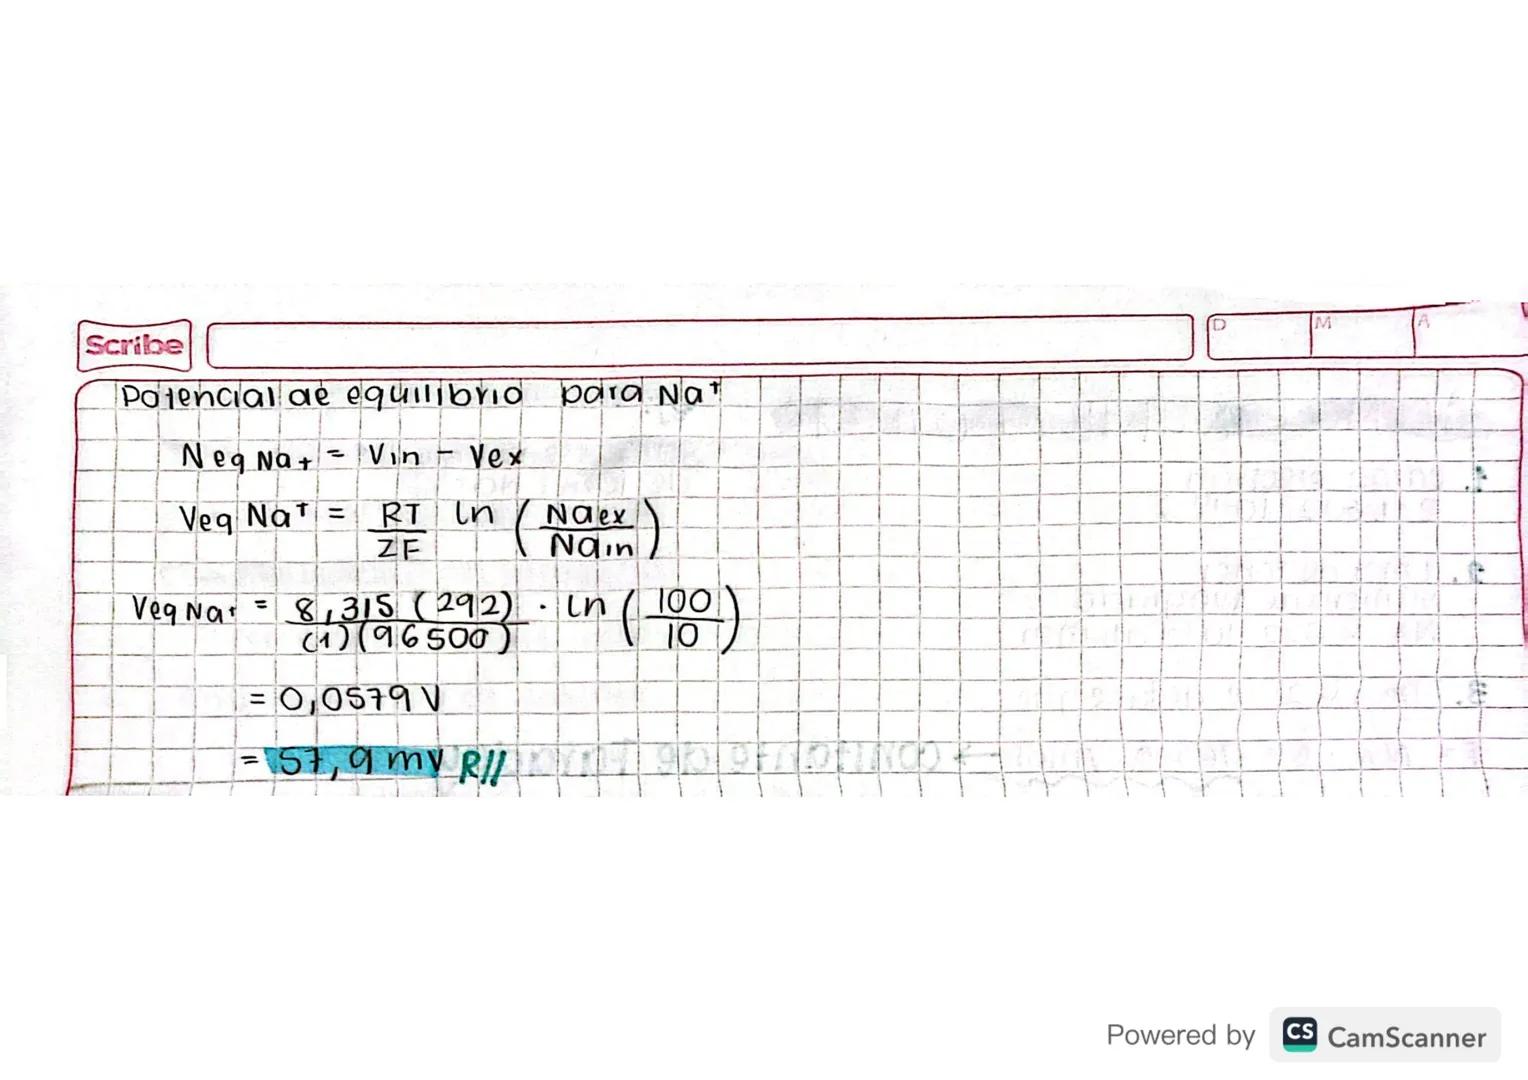 Scribe
D M A
Potencial de equilibrio para Na⁺
Neq Na+ = Vin - Vex
Veq Na⁺ = RT/ZF ln (Naex/Nain)
Veq Na⁺ = 8,315 (292)/(1)(96500) · ln (100/10)
= 0,0579 V
= 57,9 mV R//
Powered by CS CamScanner